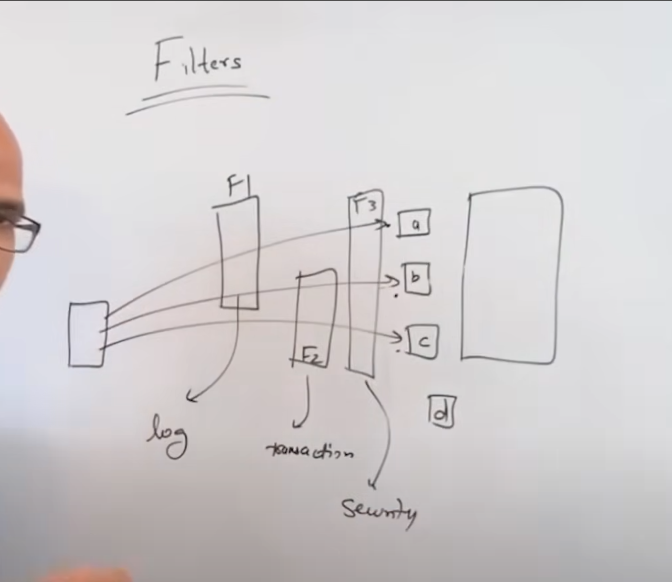 Filters
F1
F3
a
b
F2
c
d
log
transaction
security